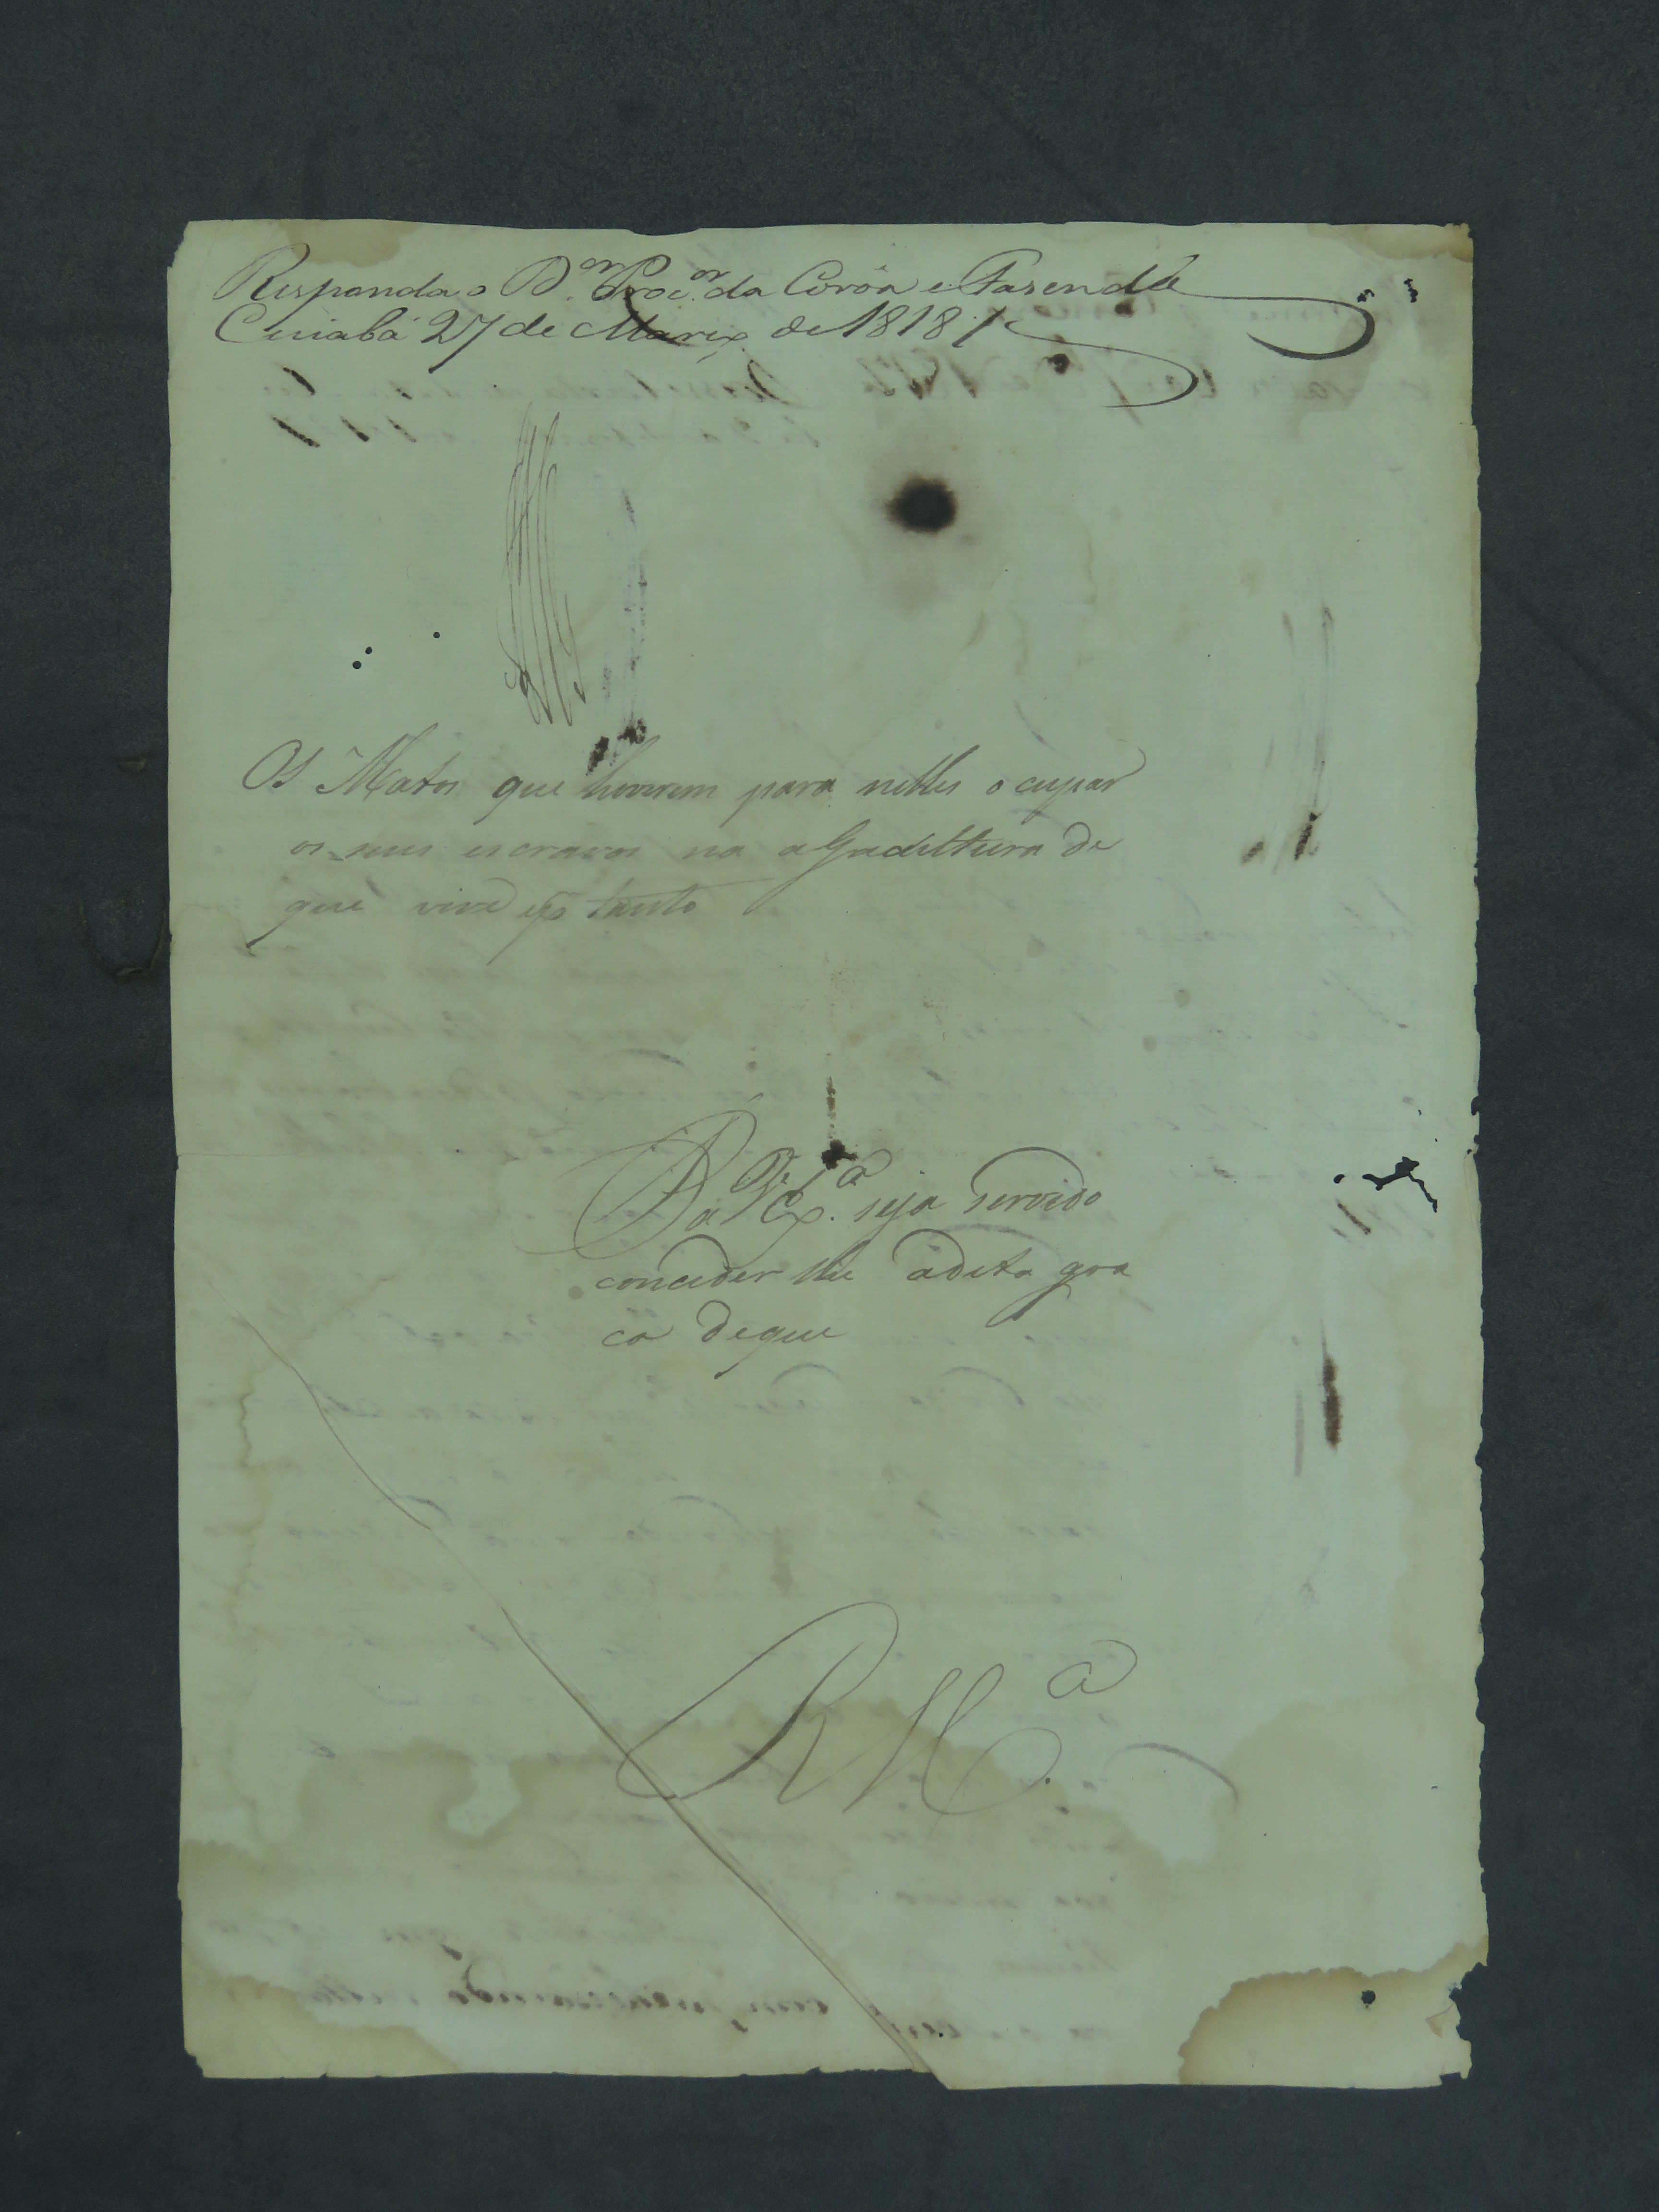 Responda o D.or Proc.or da Corôa e Fasenda
Cuiabá 27 de Março de 1818
Os Matos que houverem para nelles ocupar
os seus escravos na agricultura de
que vive e p tanto
P a V Ex.ª seja servido
conceder lhe adita gra
ca deque
R M.ª